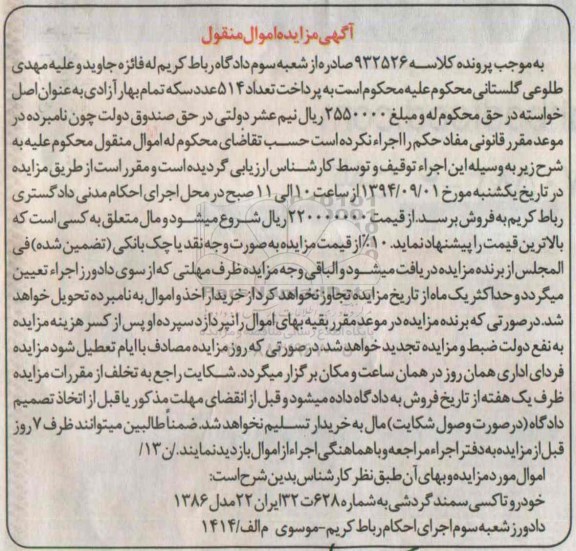 آگهی مزایده اموال منقول
به موجب پرونده کلاسه ۹۳۲۵۲۶ صادره از شعبه سوم دادگاه رباط کریم له فائزه جاوید و علیه مهدی
طلوعی گلستانی محکوم علیه محکوم است به پرداخت تعداد ۵۱۴ عدد سکه تمام بهار آزادی به عنوان اصل
خواسته در حق محکوم له و مبلغ ۲۵۵۰۰۰۰ ریال نیم عشر دولتی در حق صندوق دولت چون نامبرده در
موعد مقرر قانونی مفاد حکم را اجراء نکرده است حسب تقاضای محکوم له اموال منقول محکوم علیه به
شرح زیر به وسیله این اجراء توقیف و توسط کارشناس ارزیابی گردیده است و مقرر است از طریق مزایده
در تاریخ یکشنبه مورخ ۱۳۹۴/۰۹/۰۱ از ساعت ۱۰ الی ۱۱ صبح در محل اجرای احکام مدنی دادگستری
رباط کریم به فروش برسد. از قیمت ۲۲۰۰۰۰۰۰۰ ریال شروع میشود و مال متعلق به کسی است که
بالاترین قیمت را پیشنهاد نماید. ۱۰٪ از قیمت مزایده به صورت وجه نقد یا چک بانکی (تضمین شده) فی
المجلس از برنده مزایده دریافت میشود و الباقی وجه مزایده ظرف مهلتی که از سوی دادورز اجراء تعیین
میگردد و حداکثر یک ماه از تاریخ مزایده تجاوز نخواهد کرد از خریدار اخذ و اموال به نامبرده تحویل خواهد
شد. در صورتی که برنده مزایده در موعد مقرر بقیه بهای اموال را نپردازد سپرده او پس از کسر هزینه مزایده
به نفع دولت ضبط و مزایده تجدید خواهد شد، در صورتی که روز مزایده مصادف با ایام تعطیل شود مزایده
فردای اداری همان روز در همان ساعت و مکان برگزار میگردد. شکایت راجع به تخلف از مقررات مزایده
ظرف یک هفته از تاریخ فروش به دادگاه داده میشود و قبل از انقضای مهلت مذکور یا قبل از اتخاذ تصمیم
دادگاه (در صورت وصول شکایت) مال به خریدار تسلیم نخواهد شد. ضمناً طالبین میتوانند ظرف ۷ روز
قبل از مزایده به دفتر اجراء مراجعه و با هماهنگی اجراء از اموال بازدید نمایند./ن۱۳/
اموال مورد مزایده و بهای آن طبق نظر کارشناس بدین شرح است:
خودرو تاکسی سمند گردشی به شماره ۶۲۸ ت ۳۲ ایران ۲۲ مدل ۱۳۸۶
دادورز شعبه سوم اجرای احکام رباط کریم-موسوی م الف/۱۴۱۴